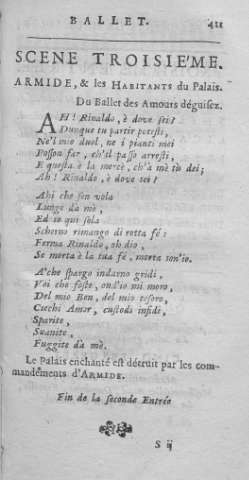 BALLET. 421
SCENE TROISIE'ME.
ARMIDE, & les HABITANTS du Palais.
Du Ballet des Amours déguisez.
AH! Rinaldo, è dove sei?
Dunque tu partir potesti,
Ne'l mio duol, ne i pianti miei
Posson far, ch'il passo arresti,
E questa è la mercè, ch'à mè tu dei;
Ah! Rinaldo, è dove sei?
Ahi che sen vola
Lungi da mè,
Ed io qui sola
Scherno rimango di rotta fé:
Ferma Rinaldo, oh dio,
Se morta è la tua fé, morta son'io.
A'che spargo indarno gridi,
Voi che foste, ond'io mi moro,
Del mio Ben, del mio tesoro,
Ciechi Amor, custodi infidi,
Sparite,
Suanite,
Fuggite da mè.
Le Palais enchanté est détruit par les com-
mandéments d'ARMIDE.
Fin de la seconde Entrée
S ij